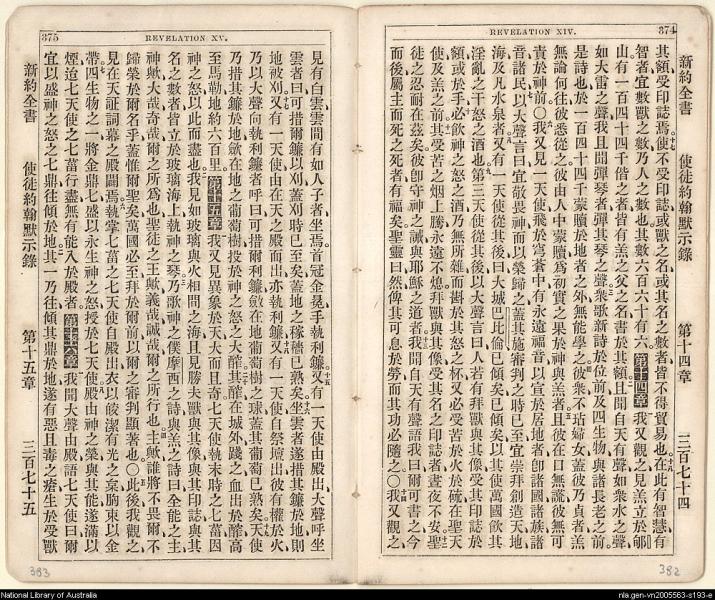 REVELATION XIV.
374
新約全書
使徒約翰默示錄
第十四章
三百七十四
其額受印誌焉使不受印誌或獸之名或其名之數者皆不得貿易也在此有智慧有
智者宜數獸之數乃人之數也其數六百六十有六第十四章我又觀之見羔立於郇
山有一百四十四千偕之者皆有羔之父之名書於其額且聞自天有聲如衆水之聲
如大雷之聲我且聞彈琴者彈其琴之聲衆歌新詩於位前及四生物與諸長老之前
是詩也於一百四十四千蒙贖於地者之外無能學之彼衆不玷婦女蓋彼乃貞者羔
無論何往彼悉從之彼由人中蒙贖爲初實之果於神與羔者且彼在口無謊彼無可
責於神前〇我又見一天使飛於穹蒼中有永遠福音以宣於居地者卽諸國諸族諸
音諸民以大聲言曰宜敬畏神而以榮歸之蓋其施審判之時已至宜崇拜創造天地
海及凡水泉者又有一天使從其後曰大城巴比倫已傾矣已傾矣以其使萬國飲其
淫亂之干怒之酒也第三天使從其後以大聲言曰人若有拜獸與其像受其印誌於
額或於手必飲神之怒之酒乃無所雜而斟於其怒之杯又必受苦於火於硫在聖天
使及羔之前其受苦之烟上騰永遠不熄拜獸與其像受其名之印誌者晝夜不安聖
徒之忍耐在茲矣彼卽守神之誡與耶穌之道者我聞自天有聲語我曰爾可書之今
而後屬主而死之死者有福矣聖靈曰然俾其可息於勞而其功必隨之〇我又觀之
382
375
REVELATION XV.
見有白雲雲間有如人子者坐焉首冠金冕手執利鐮又有一天使由殿出大聲呼坐
雲者曰可措爾鐮以刈蓋刈時已至矣蓋地之稼穡已熟矣坐雲者遂措其鐮於地則
地被刈又有一天使由在天之殿而出亦執利鐮又有一天使自祭壇出彼有權於火
乃以大聲向執利鐮者呼曰可措爾利鐮斂在地葡萄樹之球蓋其葡萄已熟矣天使
乃措其鐮於地斂在地之葡萄樹投於神之怒之大醡其醡在城外踐之血出於醡高
至馬勒地約六百里第十五章我又見異象於天大而且奇七天使執末時之七菑因
神之怒以此而盡也我見如玻璃與火相間之海且見勝夫獸與其像與其印誌與其
名之數者皆立於玻璃海上執神之琴乃歌神之僕摩西之詩與羔之詩曰全能之主
神歟大哉奇哉爾之所爲也聖徒之王歟義哉誠哉爾之所行也主歟誰將不畏爾不
歸榮於爾名乎蓋惟爾聖矣萬國必至拜於爾前以爾之審判顯著也〇此後我觀之
見在天証詞幕之殿闢焉執掌七菑之七天使自殿出衣以皎潔有光之枲胸束以金
帶四生物之一將金鼎七盛以永生神之怒授於七天使殿由神之榮與其能遂滿以
煙迨七天使之七菑行盡無有能入於殿者第十六章我聞大聲由殿語七天使曰爾
宜以盛神之怒之七鼎往傾於地其一乃往傾其鼎於地遂有惡且毒之瘡生於受獸
新約全書
使徒約翰默示錄
第十五章
三百七十五
383
National Library of Australia
nla.gen-vn2005563-s193-e